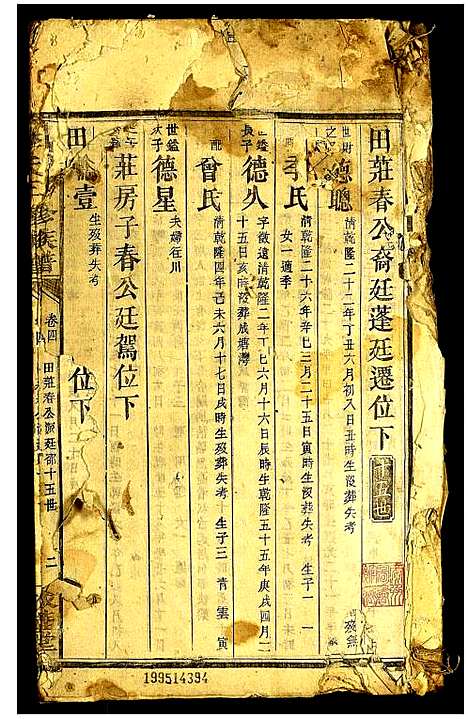 田莊春公裔廷蓬廷遷位下 十五世
德聰 清乾隆二十二年丁丑六月初八日丑時生沒葬失考
氏 清乾隆二十六年辛巳三月二十五日寅時生沒葬失考 生子一
女一適季
長子 德 字 遠清乾隆二年丁巳六月十六日辰時生乾隆五十五年庚戌四月二
十五日亥時沒葬成塘灣
配 曾氏 清乾隆四年己未六月十七日戌時生歿葬失考 生子三 青 雲 寅
世鑑 次子 德星 夫婦在川
莊房子春公廷駕位下
田 壹 位下
生歿葬失考
族譜
卷四
田莊春公派廷 十五世
二
199514394